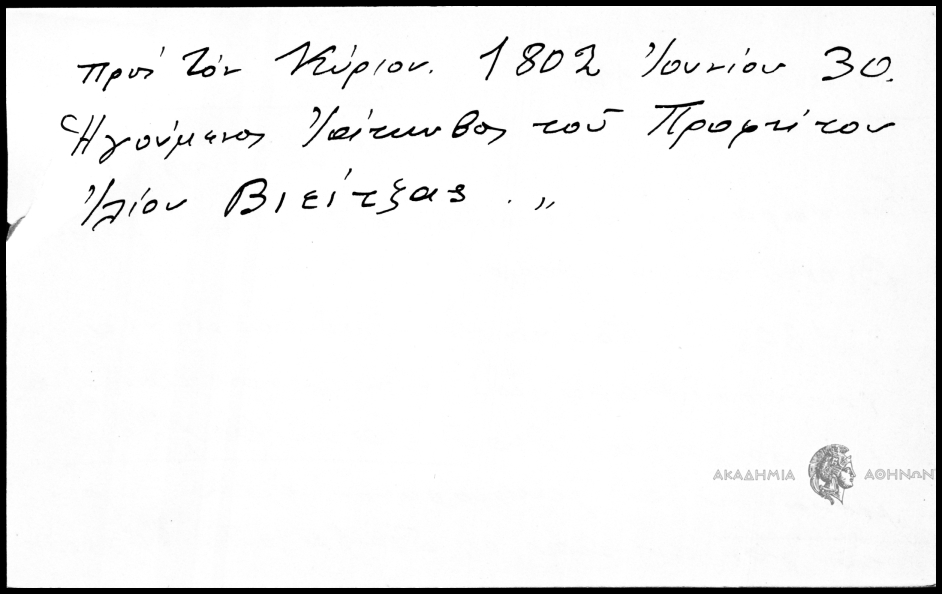 πρὸς τὸν Κύριον. 1802 Ἰουνίου 30.
Ἡγούμενος τοῦ Προφίτου
Ἰλίου Βιείτζας . „
ΑΚΑΔΗΜΙΑ ΑΘΗΝΩΝ